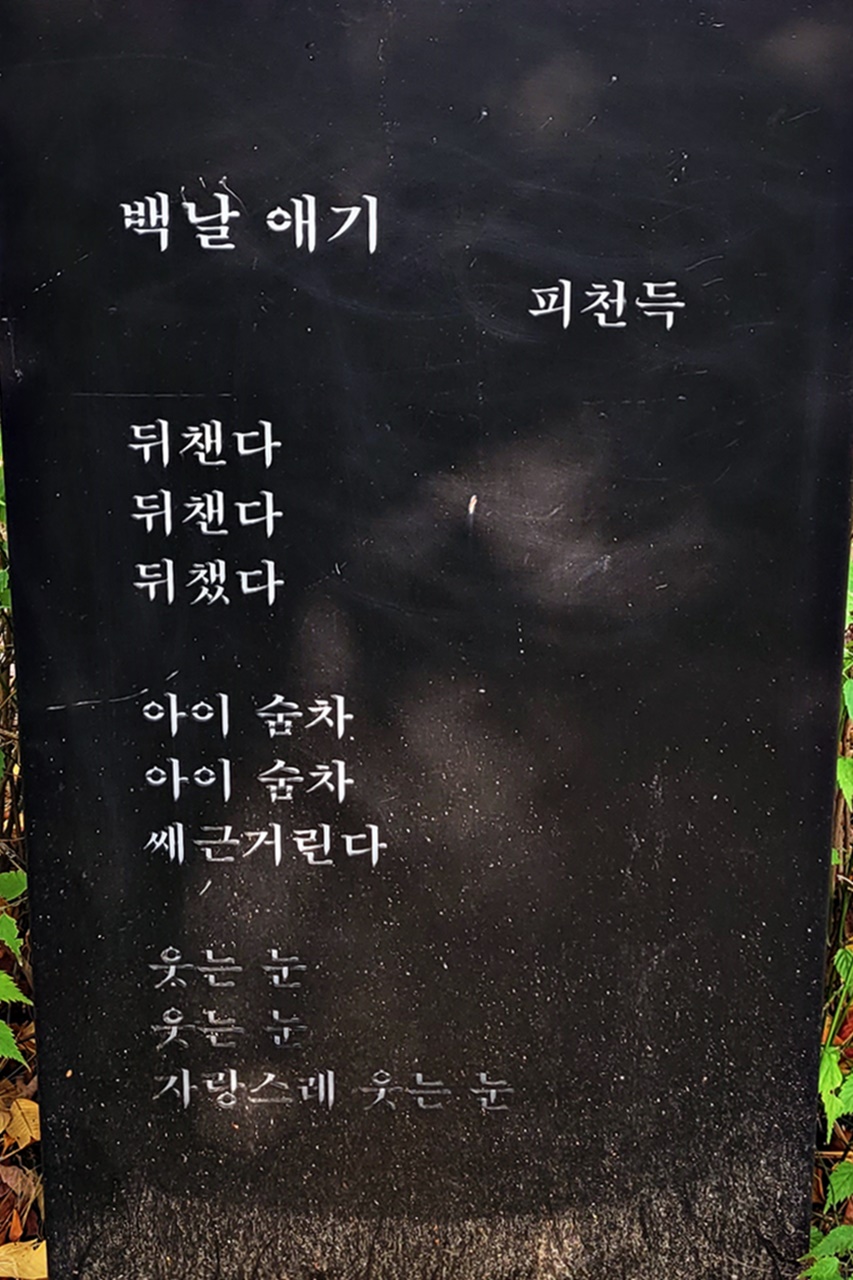 백날 애기
피천득
뒤챈다
뒤챈다
뒤챘다
아이 숨차
아이 숨차
쌔근거린다
웃는 눈
웃는 눈
자랑스레 웃는 눈